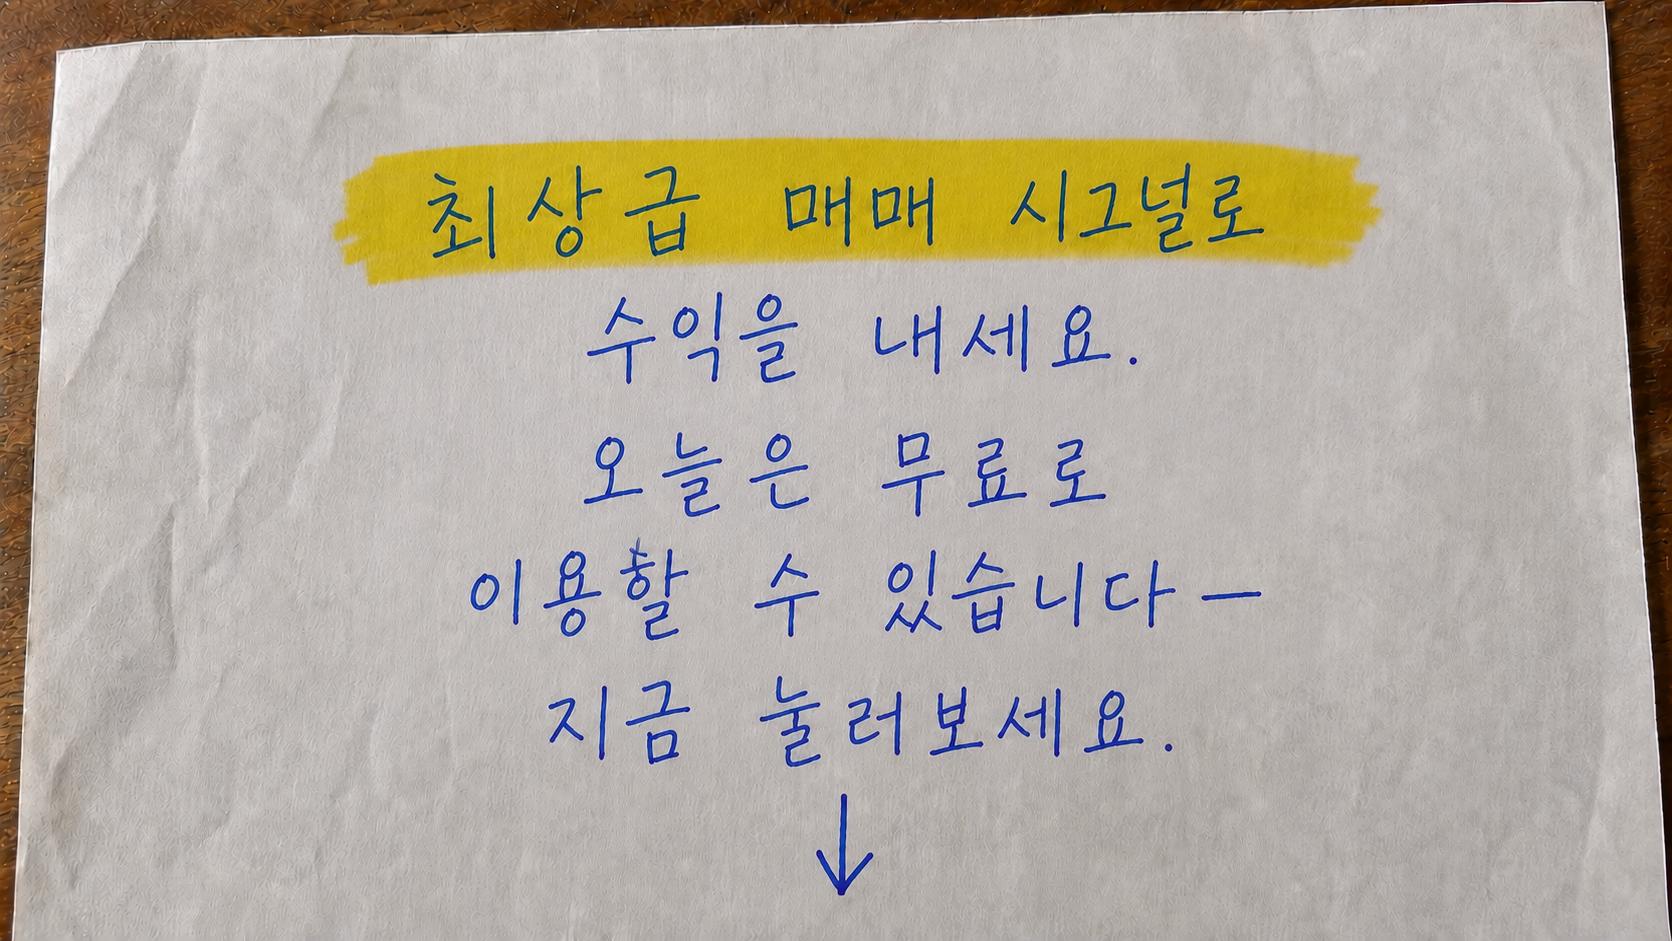 최상급 매매 시그널로
수익을 내세요.
오늘은 무료로
이용할 수 있습니다 —
지금 눌러보세요.